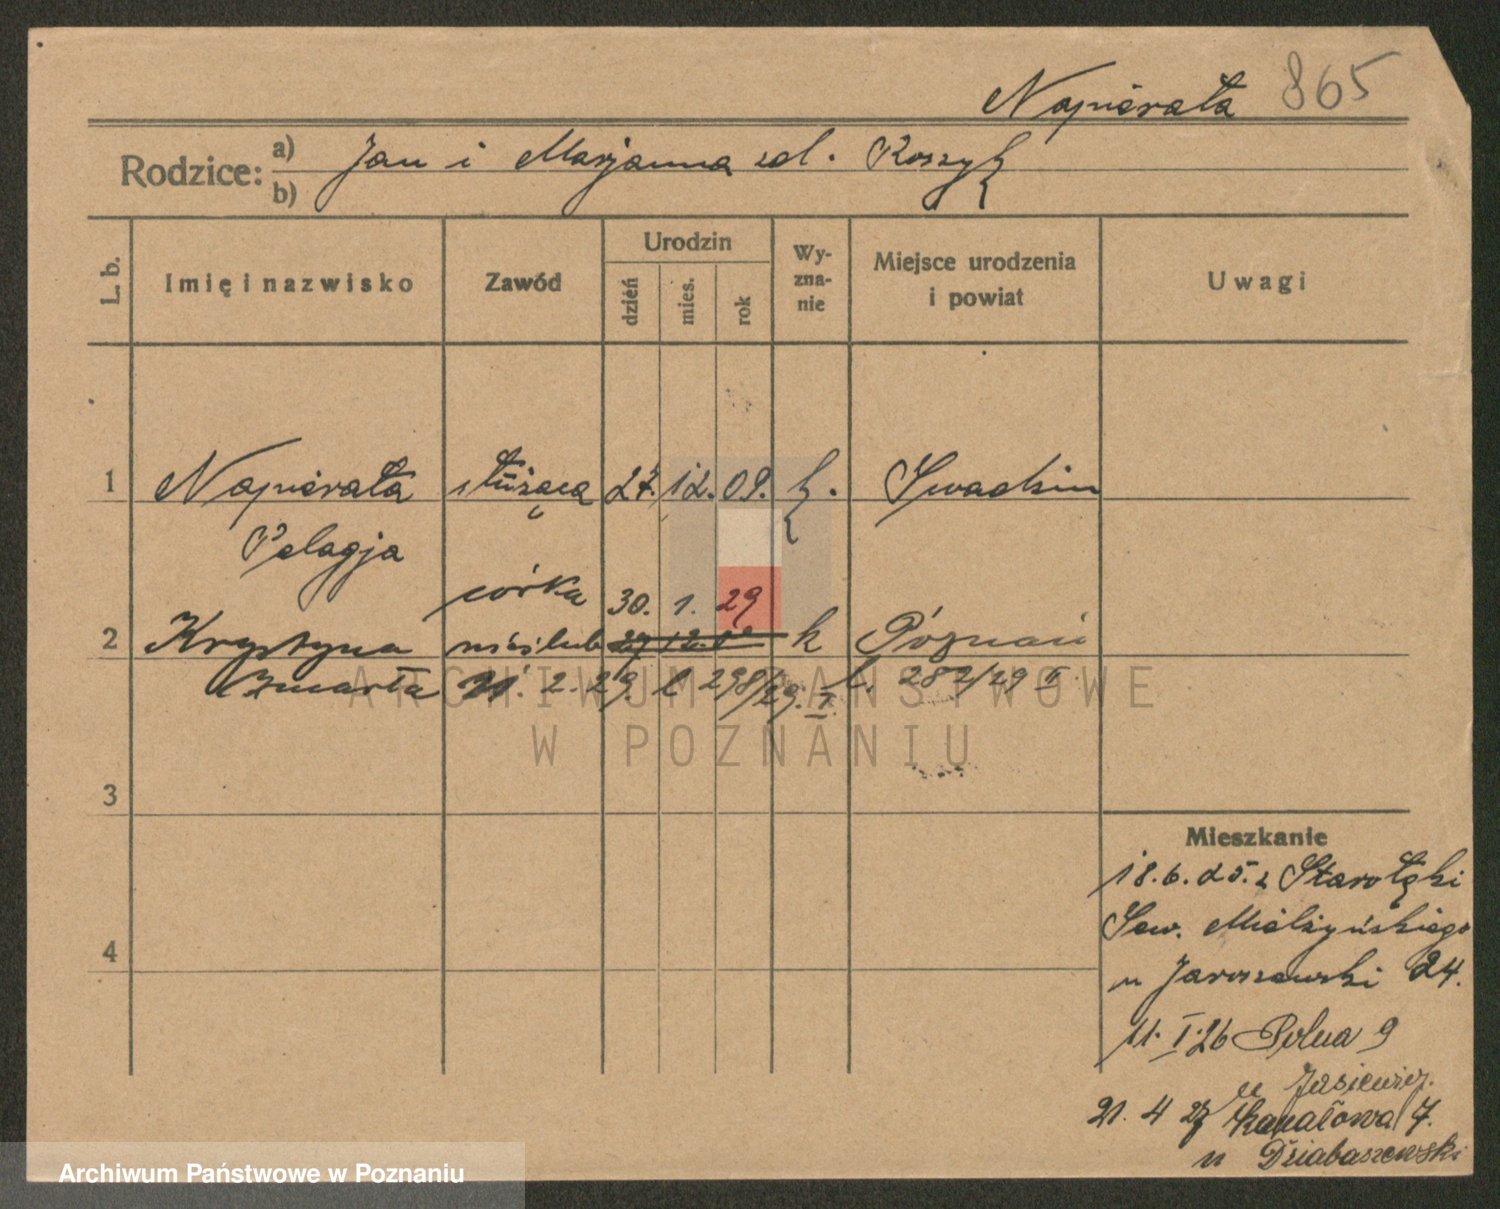 Napierała 865
Rodzice: a) b) Jan i Marjanna zd. Koszyk
L. b. Imię i nazwisko Zawód Urodzin dzień mies. rok Wyznanie Miejsce urodzenia i powiat Uwagi
1 Napierała służąca 27. 12. 09. k. Swadzim
Pelagja
córka 30. 1. 29
2 Krystyna nieślub k Poznań
Zmarła 2. 29. l 298/29. I. l. 287/29 II
ARCHIWUM PAŃSTWOWE
W POZNANIU
3
Mieszkanie
18.6.25. z Starołęki
Sew. Mielżyńskiego
4
u Jaroszewski 24.
11. I. 26 Polna 9
u Jasiewicz.
21. 4 27 Kanałowa 7.
u Dziabaszewski
Archiwum Państwowe w Poznaniu